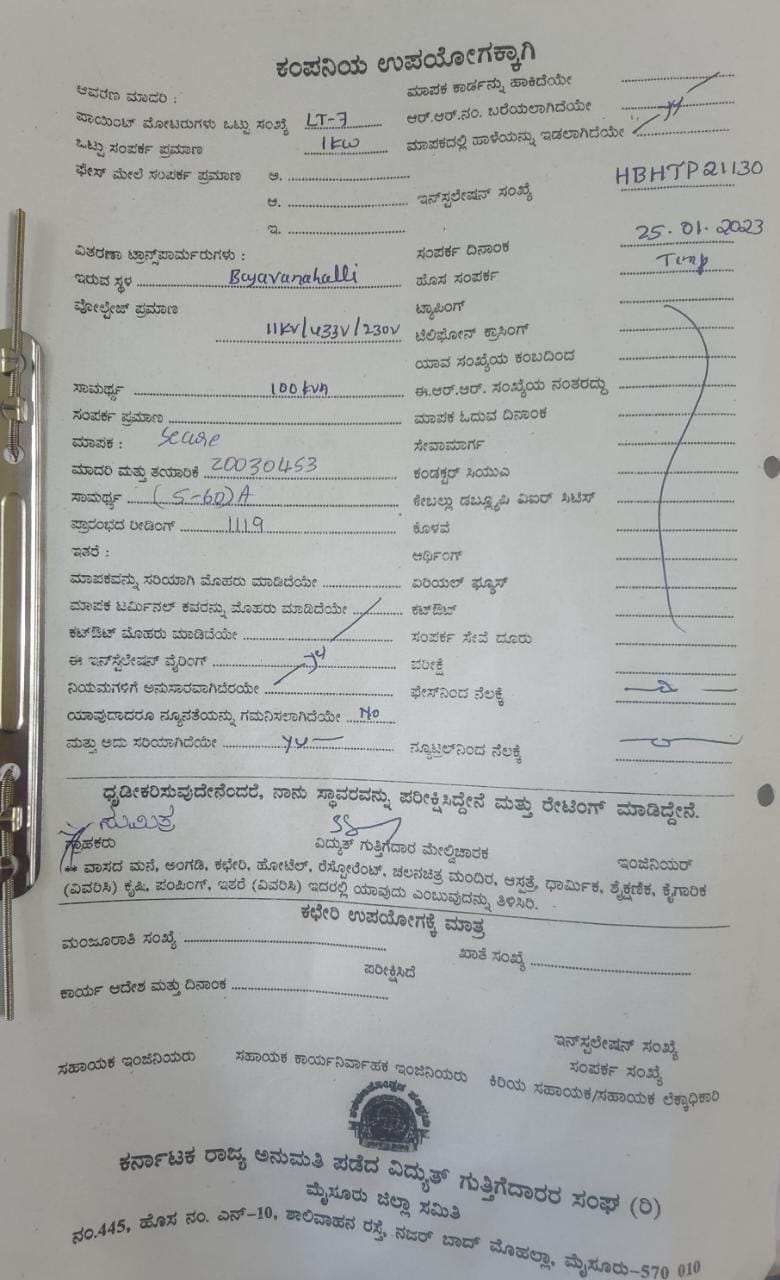 ಕಂಪನಿಯ ಉಪಯೋಗಕ್ಕಾಗಿ
ಆವರಣ ಮಾದರಿ : ಮಾಪಕ ಕಾರ್ಡನ್ನು ಹಾಕಿದೆಯೇ
ಪಾಯಿಂಟ್ ಮೋಟರುಗಳು ಒಟ್ಟು ಸಂಖ್ಯೆ LT-7 ಆರ್.ಆರ್.ನಂ. ಬರೆಯಲಾಗಿದೆಯೇ
ಒಟ್ಟು ಸಂಪರ್ಕ ಪ್ರಮಾಣ 1KW ಮಾಪಕದಲ್ಲಿ ಹಾಳೆಯನ್ನು ಇಡಲಾಗಿದೆಯೇ
ಫೇಸ್ ಮೇಲೆ ಸಂಪರ್ಕ ಪ್ರಮಾಣ ಅ.
ಆ. ಇನ್‌ಸ್ಟಲೇಷನ್ ಸಂಖ್ಯೆ HBHTP21130
ಇ.
ವಿತರಣಾ ಟ್ರಾನ್ಸ್‌ಫಾರ್ಮರುಗಳು : ಸಂಪರ್ಕ ದಿನಾಂಕ 25.01.2023
ಇರುವ ಸ್ಥಳ Bayavanahalli ಹೊಸ ಸಂಪರ್ಕ Temp
ವೋಲ್ಟೇಜ್ ಪ್ರಮಾಣ ಟ್ಯಾಪಿಂಗ್
11KV/433V/230V ಟೆಲಿಫೋನ್ ಕ್ರಾಸಿಂಗ್
ಯಾವ ಸಂಖ್ಯೆಯ ಕಂಬದಿಂದ
ಸಾಮರ್ಥ್ಯ 100 KVA ಈ.ಆರ್.ಆರ್. ಸಂಖ್ಯೆಯ ನಂತರದ್ದು
ಸಂಪರ್ಕ ಪ್ರಮಾಣ ಮಾಪಕ ಓದುವ ದಿನಾಂಕ
ಮಾಪಕ : Secure ಸೇವಾಮಾರ್ಗ
ಮಾದರಿ ಮತ್ತು ತಯಾರಿಕೆ 20030453 ಕಂಡಕ್ಟರ್ ಸಿಯುಎ
ಸಾಮರ್ಥ್ಯ (5-60)A ಕೇಬಲ್ಲು ಡಬ್ಲ್ಯೂಪಿ ವಿಐರ್ ಸಿಟಿಸ್
ಪ್ರಾರಂಭದ ರೀಡಿಂಗ್ 1119 ಕೊಳವೆ
ಇತರೆ : ಅರ್ಥಿಂಗ್
ಮಾಪಕವನ್ನು ಸರಿಯಾಗಿ ಮೊಹರು ಮಾಡಿದೆಯೇ ಏರಿಯಲ್ ಫ್ಯೂಸ್
ಮಾಪಕ ಟರ್ಮಿನಲ್ ಕವರನ್ನು ಮೊಹರು ಮಾಡಿದೆಯೇ ಕಟ್‌ಔಟ್
ಕಟ್‌ಔಟ್ ಮೊಹರು ಮಾಡಿದೆಯೇ ಸಂಪರ್ಕ ಸೇವೆ ದೂರು
ಈ ಇನ್‌ಸ್ಟಲೇಷನ್ ವೈರಿಂಗ್ ಪರೀಕ್ಷೆ
ನಿಯಮಗಳಿಗೆ ಅನುಸಾರವಾಗಿಬೆರಯೇ ಫೇಸ್‌ನಿಂದ ನೆಲಕ್ಕೆ
ಯಾವುದಾದರೂ ನ್ಯೂನತೆಯನ್ನು ಗಮನಿಸಲಾಗಿದೆಯೇ No
ಮತ್ತು ಅದು ಸರಿಯಾಗಿದೆಯೇ ನ್ಯೂಟ್ರಲ್‌ನಿಂದ ನೆಲಕ್ಕೆ
ಧೃಡೀಕರಿಸುವುದೇನೆಂದರೆ, ನಾನು ಸ್ಥಾವರವನ್ನು ಪರೀಕ್ಷಿಸಿದ್ದೇನೆ ಮತ್ತು ರೇಟಿಂಗ್ ಮಾಡಿದ್ದೇನೆ.
ಸುಮಿತ್ರ
ಗ್ರಾಹಕರು ವಿದ್ಯುತ್ ಗುತ್ತಿಗೆದಾರ ಮೇಲ್ವಿಚಾರಕ ಇಂಜಿನಿಯರ್
** ವಾಸದ ಮನೆ, ಅಂಗಡಿ, ಕಛೇರಿ, ಹೋಟೆಲ್, ರೆಸ್ಟೋರೆಂಟ್, ಚಲನಚಿತ್ರ ಮಂದಿರ, ಆಸ್ಪತ್ರೆ, ಧಾರ್ಮಿಕ, ಶೈಕ್ಷಣಿಕ, ಕೈಗಾರಿಕ
(ವಿವರಿಸಿ) ಕೃಷಿ, ಪಂಪಿಂಗ್, ಇತರೆ (ವಿವರಿಸಿ) ಇದರಲ್ಲಿ ಯಾವುದು ಎಂಬುವುದನ್ನು ತಿಳಿಸಿರಿ.
ಕಛೇರಿ ಉಪಯೋಗಕ್ಕೆ ಮಾತ್ರ
ಮಂಜೂರಾತಿ ಸಂಖ್ಯೆ ಖಾತೆ ಸಂಖ್ಯೆ
ಪರೀಕ್ಷಿಸಿದೆ
ಕಾರ್ಯ ಆದೇಶ ಮತ್ತು ದಿನಾಂಕ
ಇನ್‌ಸ್ಟಲೇಷನ್ ಸಂಖ್ಯೆ
ಸಂಪರ್ಕ ಸಂಖ್ಯೆ
ಸಹಾಯಕ ಇಂಜಿನಿಯರು ಸಹಾಯಕ ಕಾರ್ಯನಿರ್ವಾಹಕ ಇಂಜಿನಿಯರು ಕಿರಿಯ ಸಹಾಯಕ/ಸಹಾಯಕ ಲೆಕ್ಕಾಧಿಕಾರಿ
ಕರ್ನಾಟಕ ರಾಜ್ಯ ಅನುಮತಿ ಪಡೆದ ವಿದ್ಯುತ್ ಗುತ್ತಿಗೆದಾರರ ಸಂಘ (ರಿ)
ಮೈಸೂರು ಜಿಲ್ಲಾ ಸಮಿತಿ
ನಂ.445, ಹೊಸ ನಂ. ಎನ್-10, ಶಾಲಿವಾಹನ ರಸ್ತೆ, ನಜರ್ ಬಾದ್ ಮೊಹಲ್ಲಾ, ಮೈಸೂರು-570 010